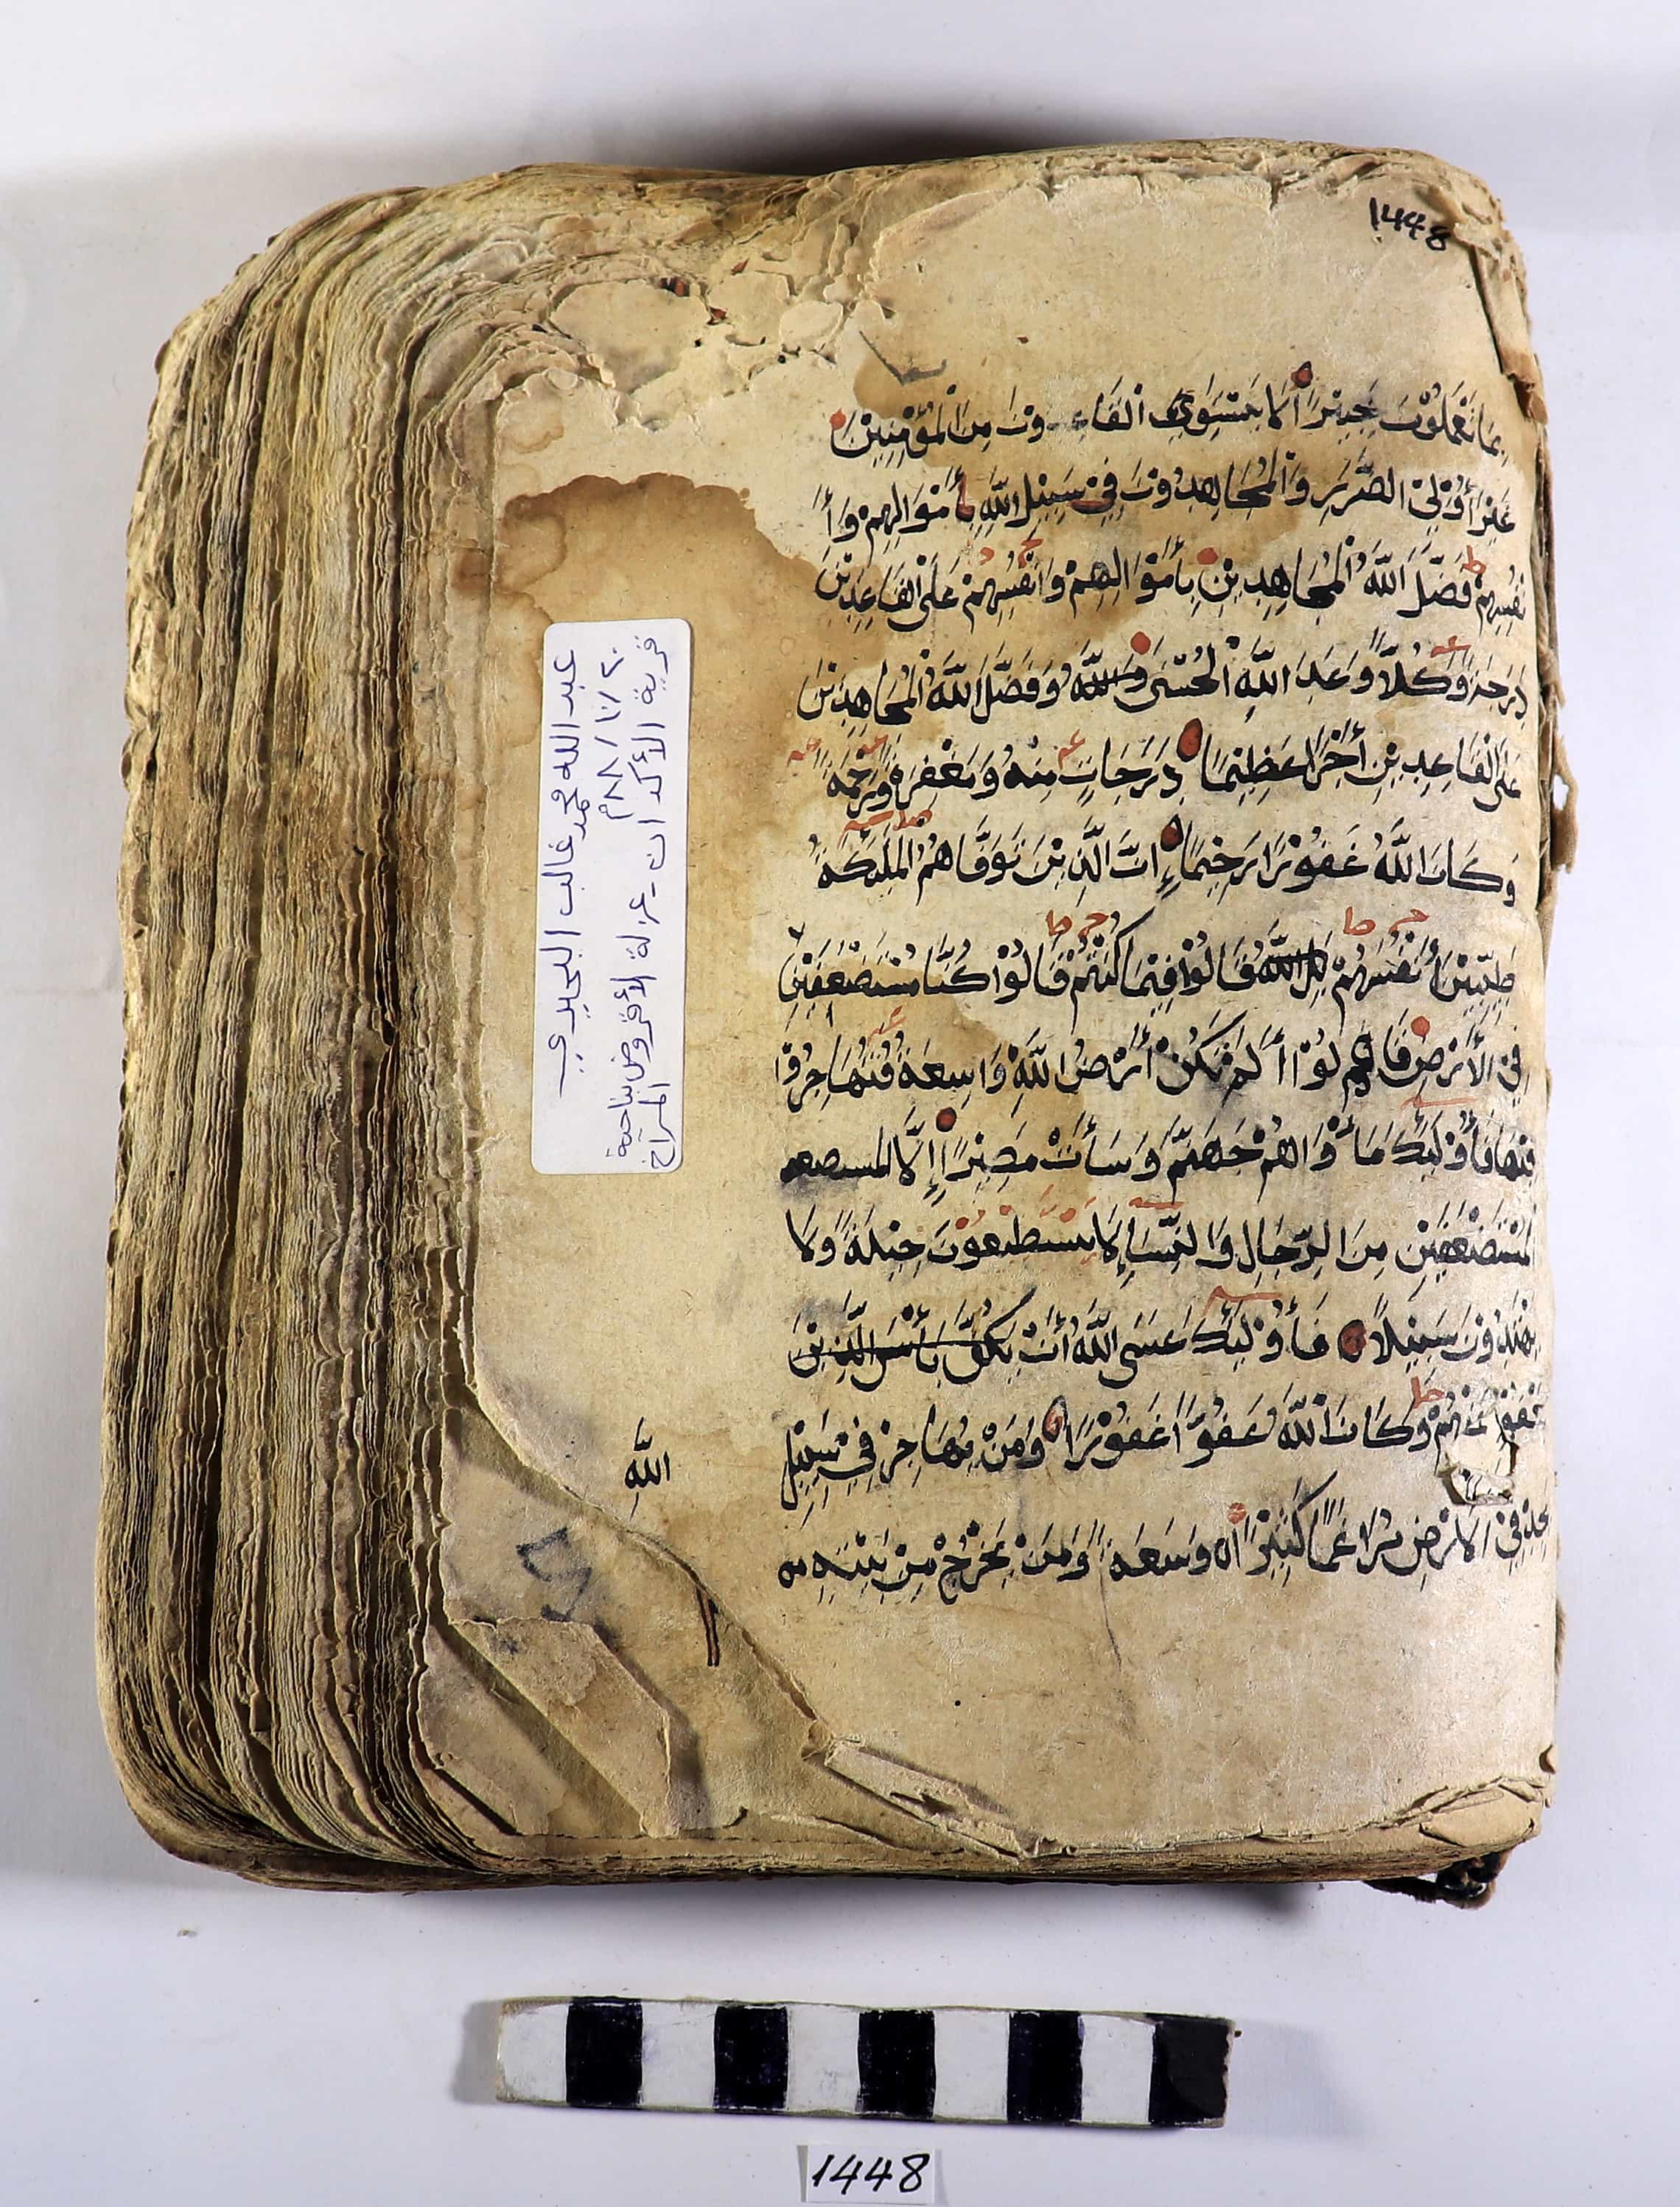 1448
بِمَا تَعْمَلُوْنَ خَبِيْرًا لَا يَسْتَوِي الْقَاعِدُوْنَ مِنَ الْمُؤْمِنِيْنَ
غَيْرَ أُوْلِيْ الضَّرَرِ وَالْمُجَاهِدُوْنَ فِيْ سَبِيْلِ اللّٰهِ بِأَمْوَالِهِمْ وَأَ
نْفُسِهِمْ فَضَّلَ اللّٰهُ الْمُجَاهِدِيْنَ بِأَمْوَالِهِمْ وَأَنْفُسِهِمْ عَلَى الْقَاعِدِيْنَ
دَرَجَةً وَكُلًّا وَعَدَ اللّٰهُ الْحُسْنَى وَاللّٰهُ وَفَضَّلَ اللّٰهُ الْمُجَاهِدِيْنَ
عَلَى الْقَاعِدِيْنَ أَجْرًا عَظِيْمًا دَرَجَاتٍ مِنْهُ وَمَغْفِرَةً وَرَحْمَةً
وَكَانَ اللّٰهُ غَفُوْرًا رَحِيْمًا إِنَّ الَّذِيْنَ تَوَفَّاهُمُ الْمَلَئِكَةُ
ظَلِمِيْنَ أَنْفُسِهِمْ اللّٰه قَالُوْا فِيْمَا كُنْتُمْ قَالُوْا كُنَّا مُسْتَضْعَفِيْنَ
فِيْ الْأَرْضِ قَالُوْا أَلَمْ تَكُنْ أَرْضُ اللّٰهِ وَاسِعَةً فَتُهَاجِرُوْا
فِيْهَا فَأُوْلَئِكَ مَأْوَاهُمْ جَهَنَّمُ وَسَأَتْ مَصِيْرًا إِلَّا المستضعـ
لْمُسْتَضْعَفِيْنَ مِنَ الرِّجَالِ وَالنِّسَاءِ لَا يَسْتَطِيْعُوْنَ حِيْلَةً وَلَا
يَهْتَدُوْنَ سَبِيْلًا فَأُوْلَئِكَ عَسَى اللّٰهُ أَنْ يَكُفَّ بَأْسَ الَّذِيْنَ
يَعْفُوَ عَنْهُمْ وَكَانَ اللّٰهُ عَفُوًّا غَفُوْرًا وَمَنْ يُهَاجِرْ فِيْ سَبِيْلِ
اللّٰهِ
يَجِدْ فِيْ الْأَرْضِ مُرَاغَمًا كَثِيْرًا وَسَعَةً وَمَنْ يَخْرُجْ مِنْ بَيْتِهِ
عبد الله محمد غالب البحيري
٨٨/١/٢٠م
قرية الأكدان - عزلة الأقروض بناحية
المسراخ
1448